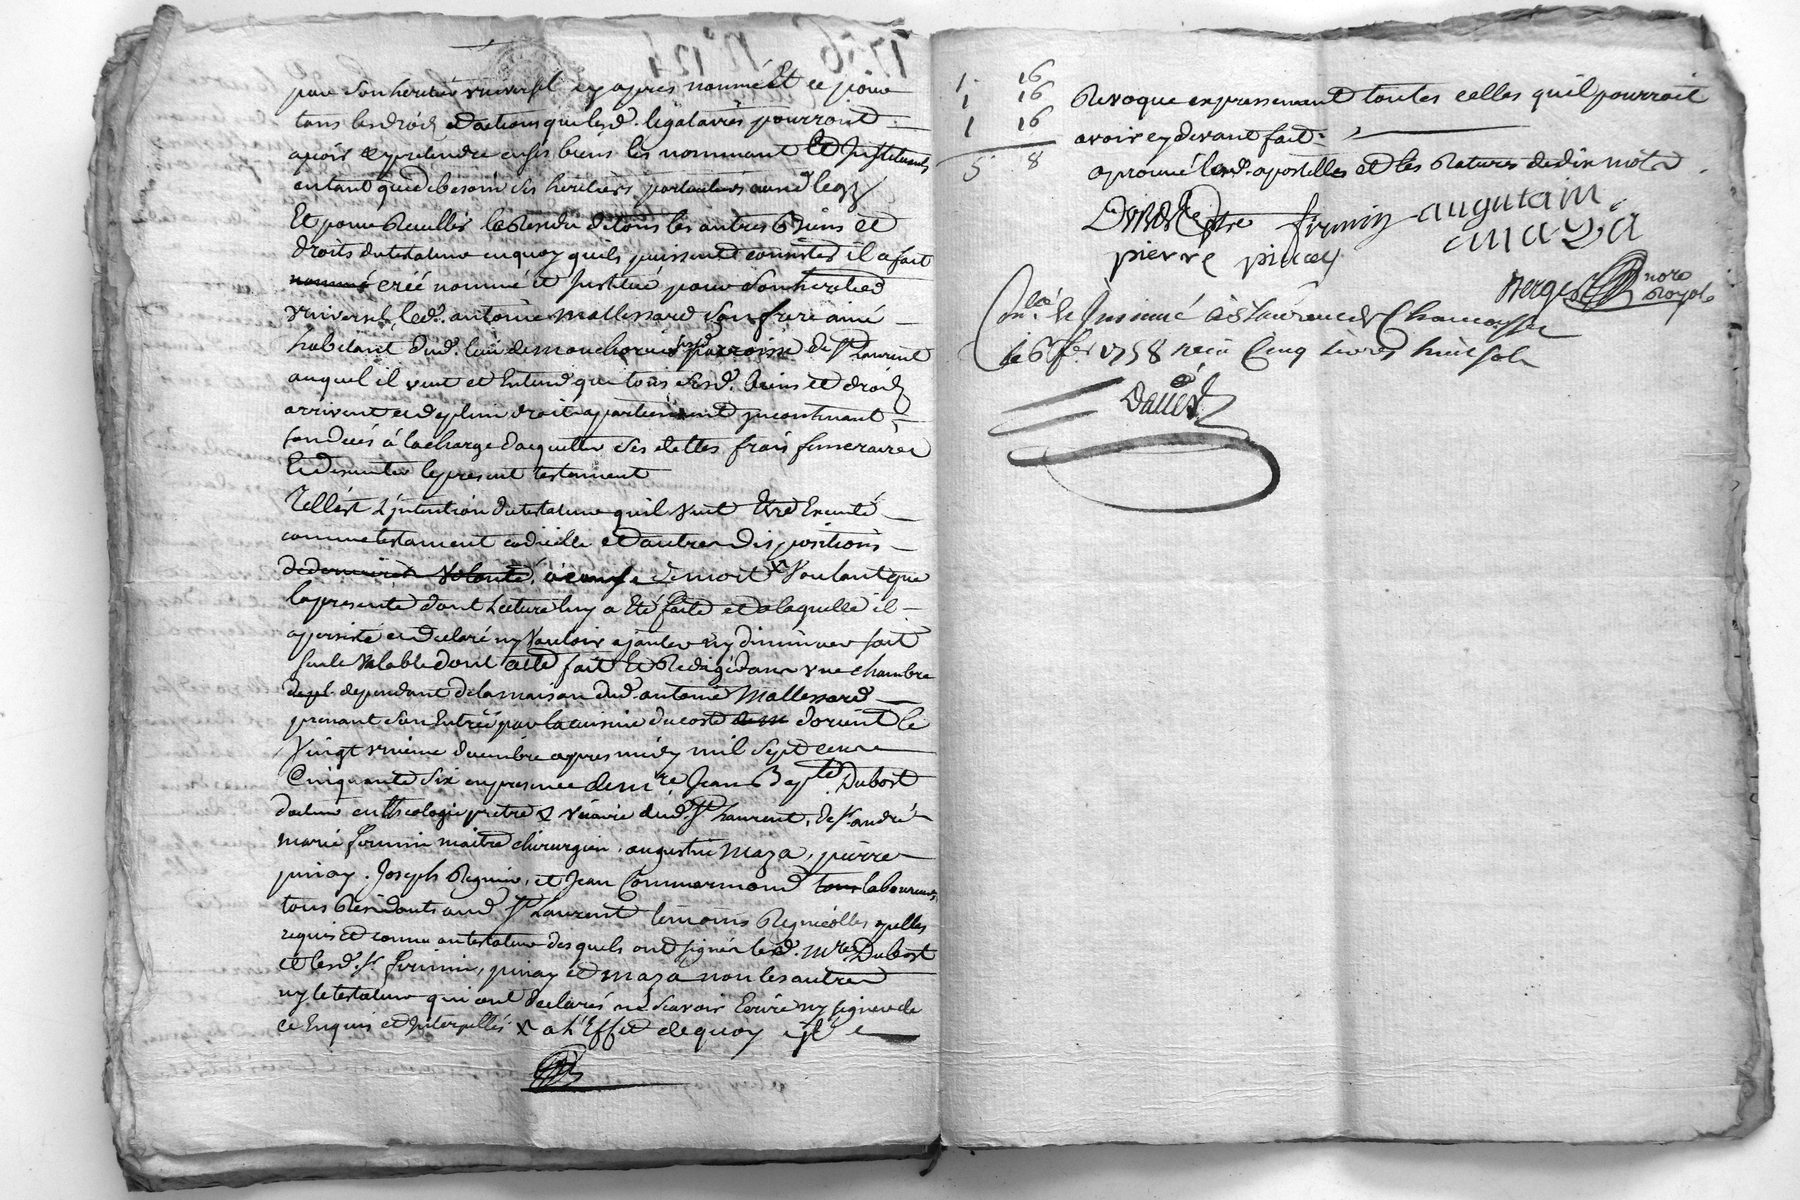 par son heritier universel cy apres nommé Et ce pour
tous les droits et actions que lesd. legataires pourroint
avoir et pretendre en ses biens les nommant et Instituants
entant que de besoin ses heritiers particuliers aud legs
Et pour Recullir le Residu de tous les autres Biens et
droits du testateur en quoy quils puissent consister il a fait
nommé créé nommé et Institué pour son heritier
universel led. antoine Mallessard son frere ainé
habitant dud. lieu de parroisse de St Laurent
auquel il veut et Entend que tous sesd. biens et droits
arrivent et de plein droit apartiennent jncontinant
son deces á la charge dacquitter ses dettes frais funeraires
Et dexecuter le present testament
Telle est L'jntention du testateur quil veut Etre Executé
comme testament codicille et autres dispositions
de derniere volonté, a cause de mort x Voulant que
la presente dont Lecture luy a Eté faite et a laquelle il
a persisté et declaré ny Vouloir ajouter ny diminuer soit
seule valable dont acte fait Et Redigé dans une chambre
dependant de la maison dud. antoine Mallessard
prenant son Entrée par la cuisine du costé dorient le
Vingt unieme decembre apres midy mil sept cens
Cinquante six en presence de mre Jean Bapte. Dubost
docteur en theologie pretre & vicaire dud St Laurent, de sr andré
marie firmin maitre chirurgien, augustin Maza, pierre
pinay, Joseph Reynin, et Jean Commarmond tous laboureurs,
tous Residants aud St Laurent temoins Regnicolles apellés
requis et connu au testateur desquels ont signés led. Mre Dubost
et lesd. sr firmin, pinay et maza non les autres
ny le testateur qui ont declarés ne scavoir Ecrire ny signer de
ce Enquis et Interpellés x a L'Effet de quoy il
1 16
1 16
1 16
5 8
Revoque expressement toutes celles quil pourroit
avoir cy devant fait
aprouvé lesd. apostilles et les Ratures de dix mots
Dubost ptre firmin augutain
maza
pierre pinay
Berger nore
Royal
Conlé. & Jnsinué a St Laurent de Chamousset
le 6 fer. 1758 recu Cinq livres huit sols